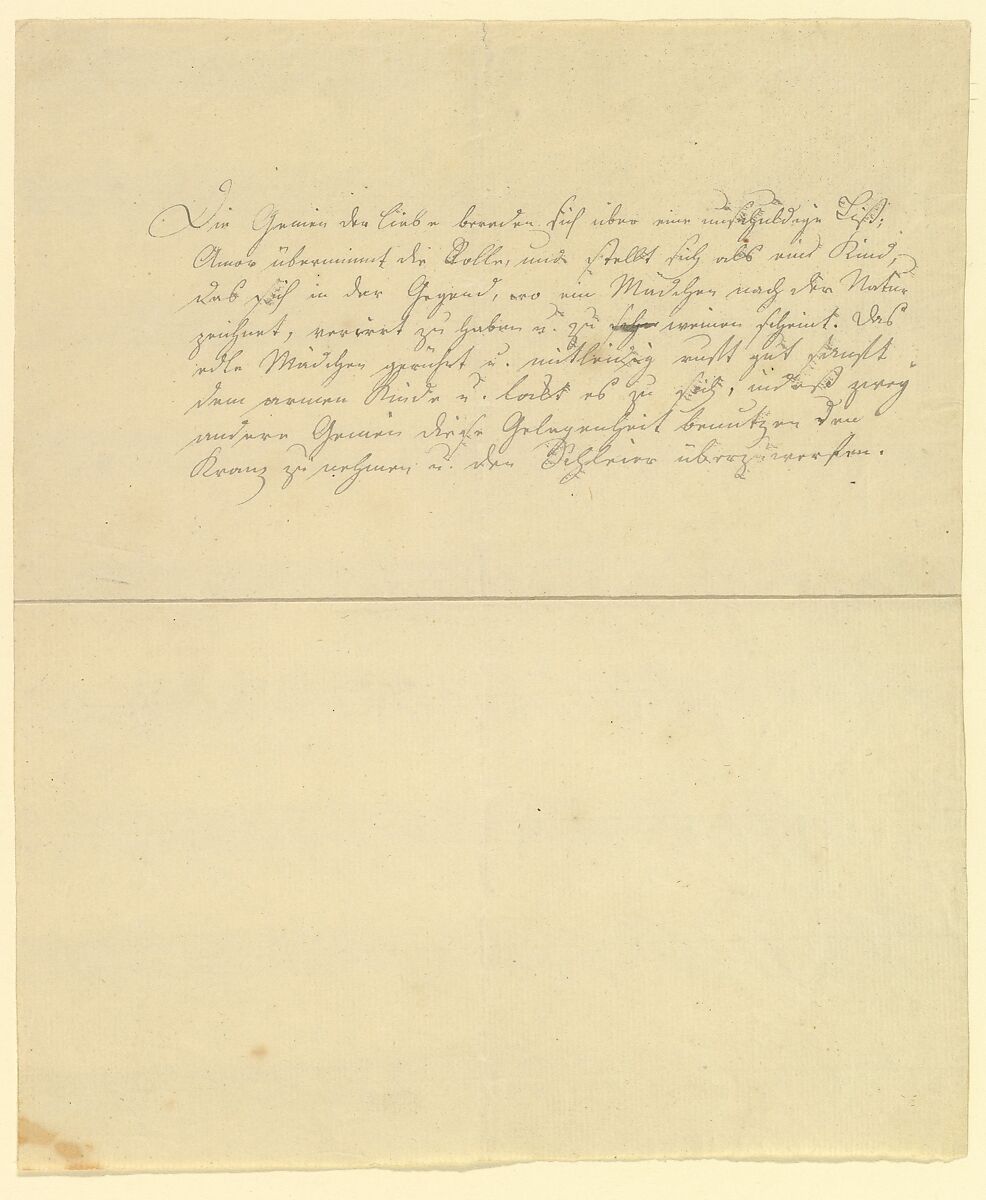 Die Genien der Liebe bereden sich über eine unschuldige List;
Amor übernimmt die Rolle, und stellt sich als ein Kind,
das sich in der Gegend, wo ein Mädchen nach der Natur
zeichnet, verirrt zu haben u. zu weinen scheint. Das
edle Mädchen gerührt u. mitleidig ruft gut sanft
dem armen Kinde u. lockt es zu sich, indeß zwey
andere Genien diese Gelegenheit benutzen den
Kranz zu nehmen u. den Schleier überzuwerfen.